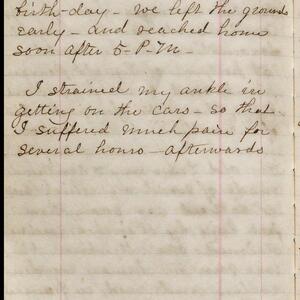 birth-day - we left the grounds
early - and reached home
soon after 5- P-M-
I strained my ankle in
getting on the cars - so that
I suffered much pain for
several hours - afterwards